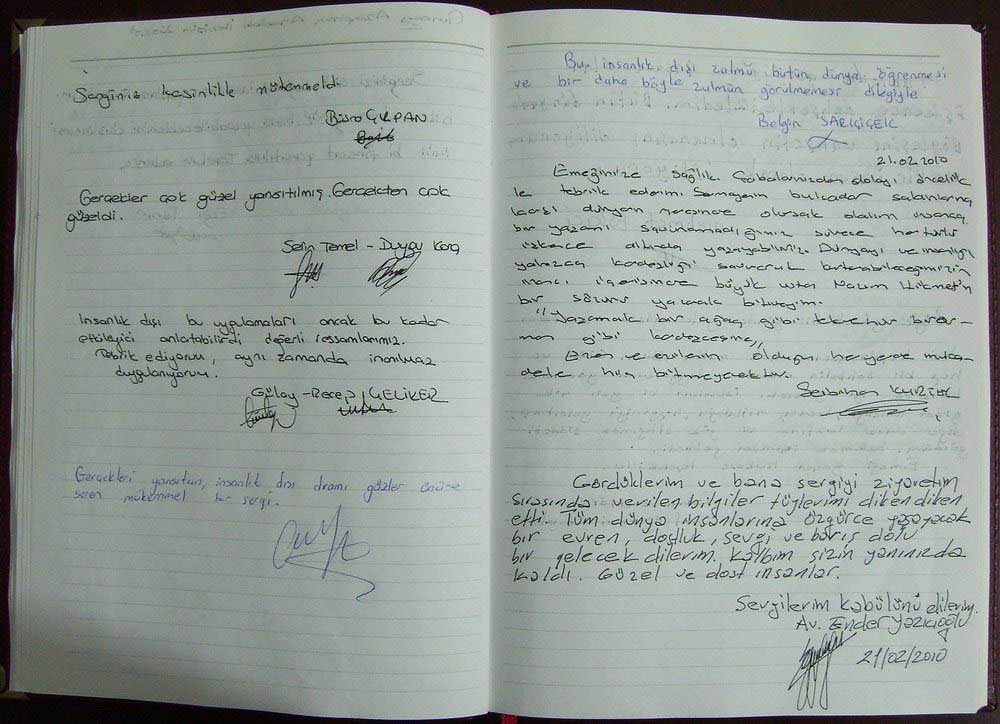 Serginiz kesinlikle mükemmeldi.
Büşra ÇIRPAN
Gerçekler çok güzel yansıtılmış. Gerçekten çok
güzeldi.
Selin Temel - Duygu Kara
İnsanlık dışı bu uygulamaları ancak bu kadar
etkileyici anlatabilirdi değerli ressamlarımız.
Tebrik ediyorum, aynı zamanda inanılmaz
duygulanıyorum.
Gülay - Recep ÇELİKER
Gerçekleri yansıtan, insanlık dışı dramı gözler önüne
seren mükemmel bir sergi.
Bu insanlık dışı zulmü bütün dünya öğrenmesi
ve bir daha böyle zulmün görülmemesi dileğiyle
Belgin SARIÇİÇEK
21.02.2010
Emeğinize sağlık. Çabalarınızdan dolayı öncelik
le tebrik ederim.
karşı dünyanın neresinde olursak olalım insanca
bir yaşamı savunamadığımız sürece her türlü
işkence altında yaşayabiliriz. Dünyayı ve insanlığı
yalnızca kardeşliği savunarak kurtarabileceğimizin
inancı içerisinde büyük usta Nazım Hikmet'in
bir sözünü yazarak bitireyim.
"Yaşamak bir ağaç gibi tek ve hür bir or-
man gibi kardeşçesine"
Ezen ve ezilenin olduğu her yerde müca-
dele hiç bitmeyecektir.
Gördüklerim ve bana sergiyi ziyaretim
sırasında verilen bilgiler tüylerimi diken diken
etti. Tüm dünya insanlarına özgürce yaşayacak
bir evren, dostluk, sevgi ve barış dolu
bir gelecek dilerim. Kalbim sizin yanınızda
kaldı. Güzel ve dost insanlar.
Sevgilerim kabülünü dilerim.
Av. Ender Yazıcıoğlu
21/02/2010